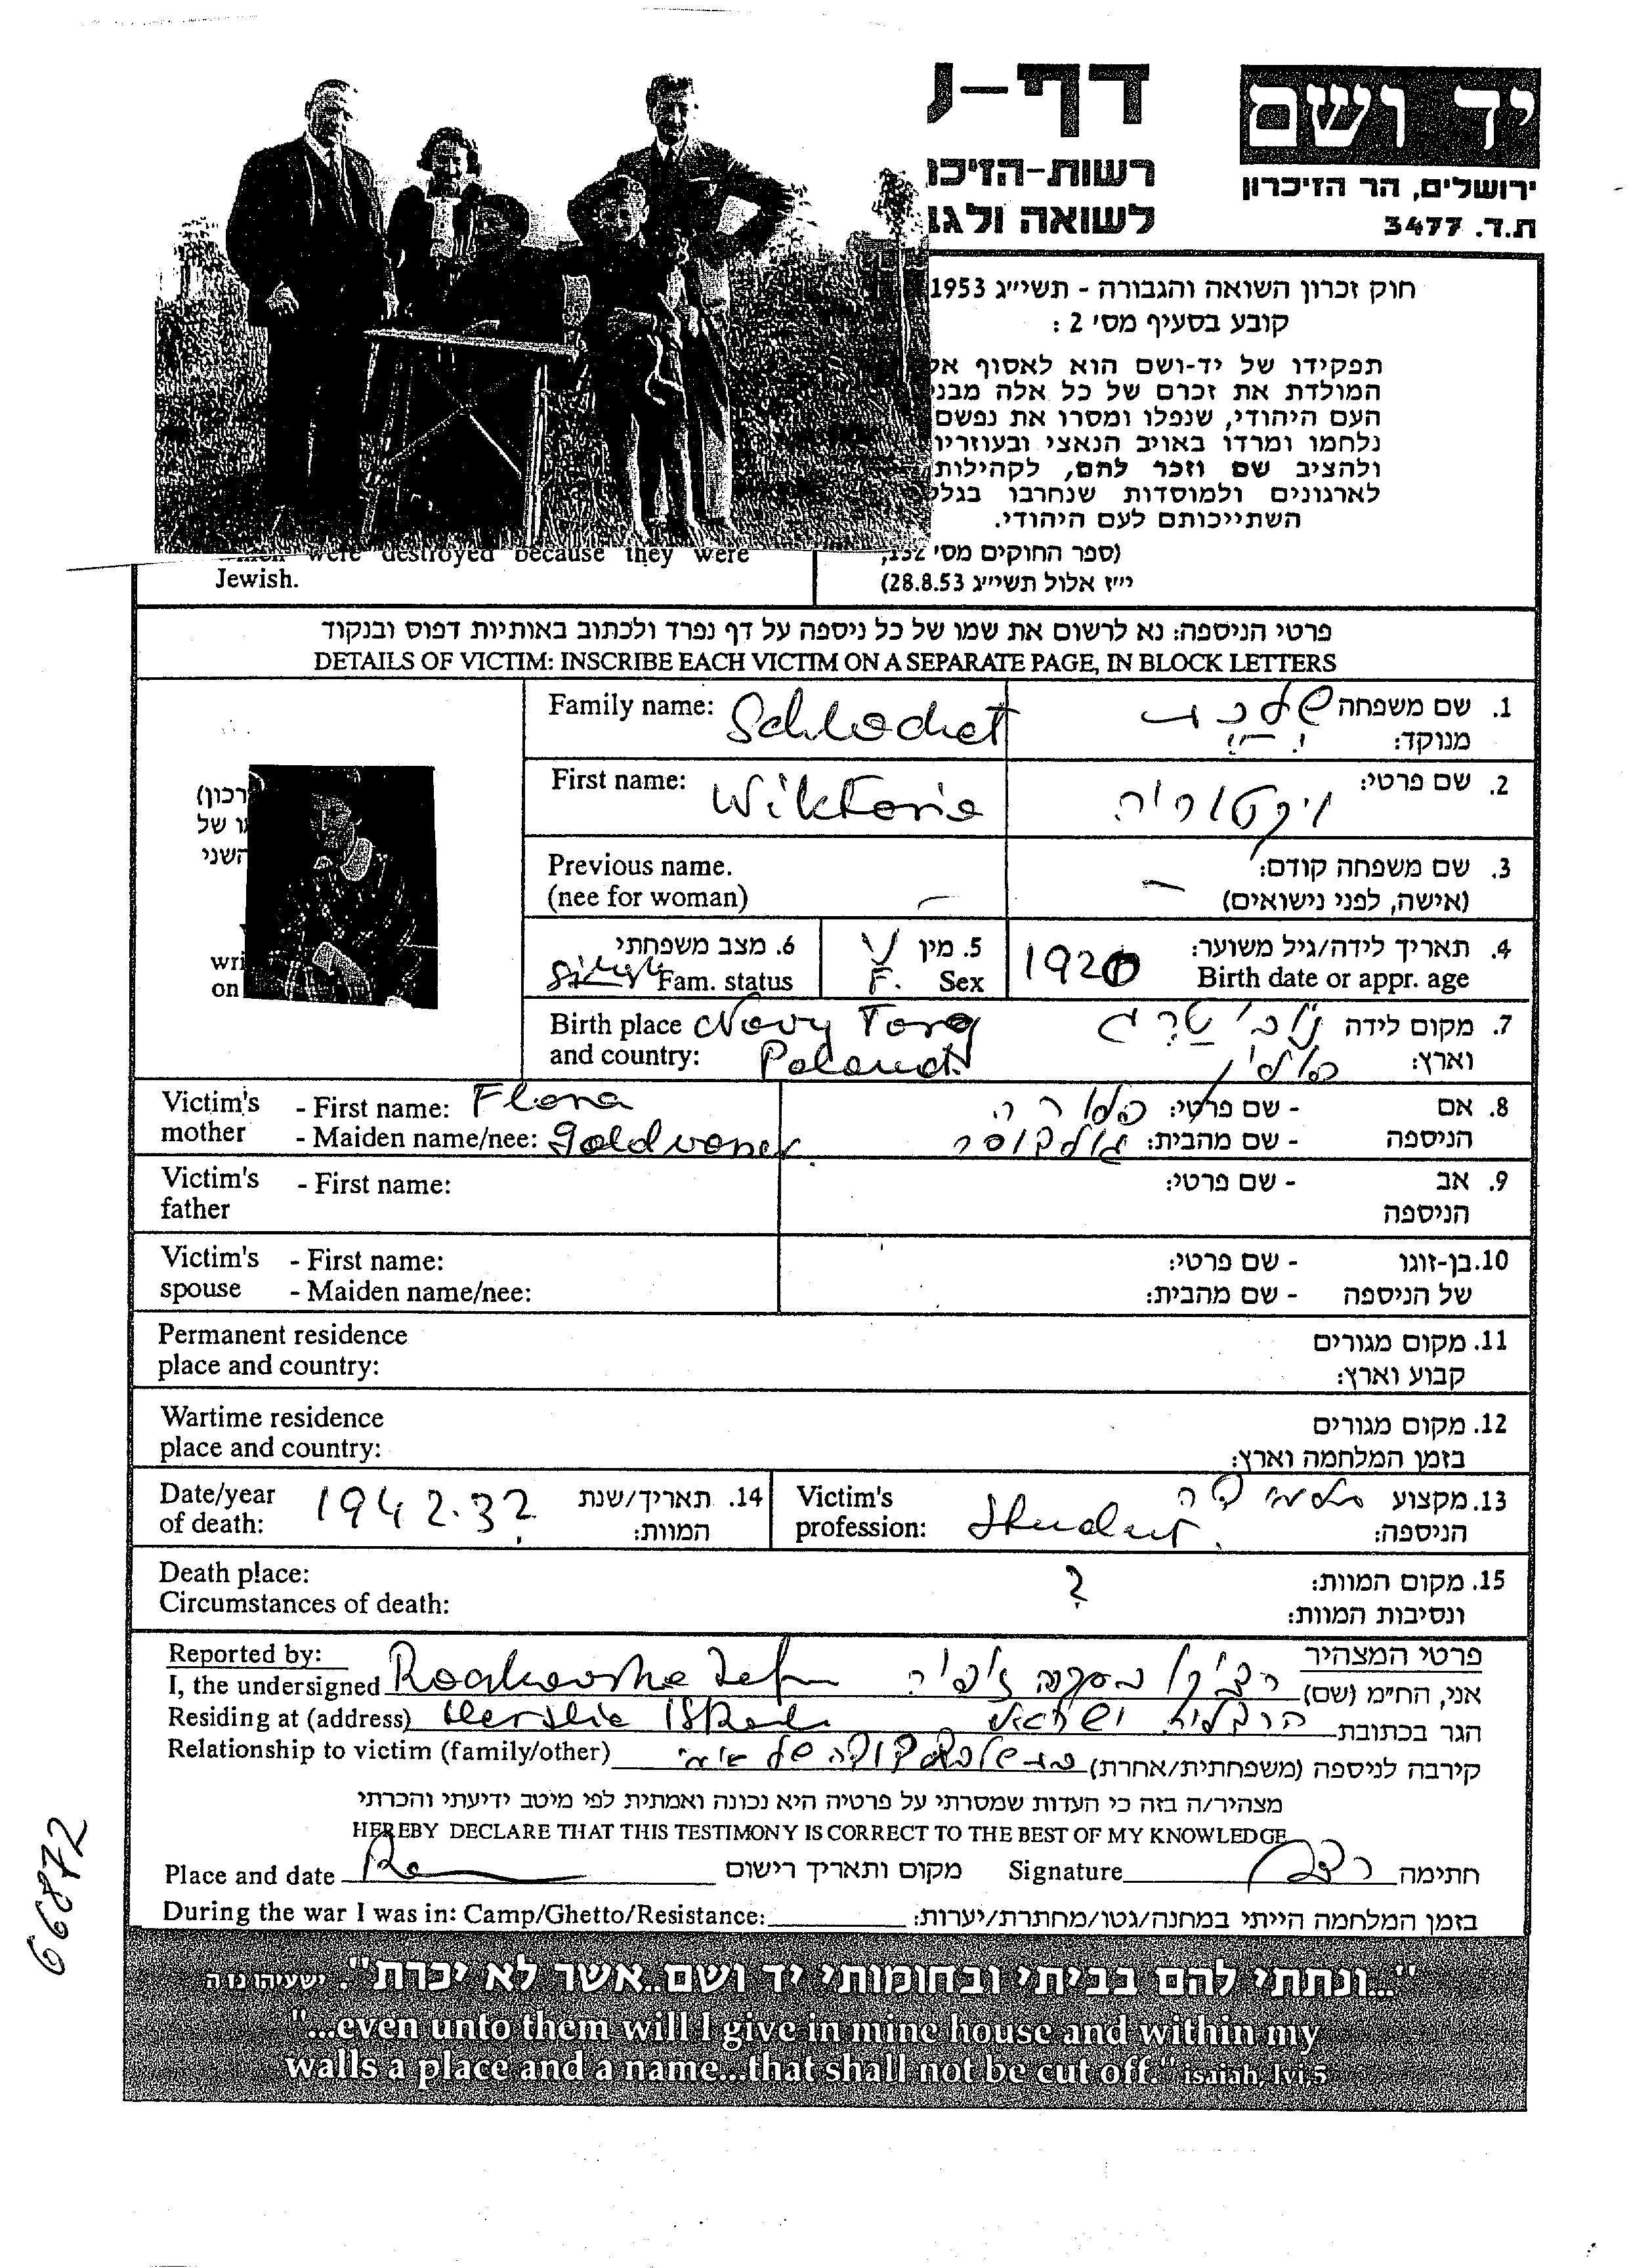 יד ושם
ירושלים, הר הזיכרון
ת.ד. 3477
דף-
רשות-הזיכ
לשואה ולג
חוק זכרון השואה והגבורה - תשי״ג 1953
קובע בסעיף מס' 2 :
תפקידו של יד-ושם הוא לאסוף א
המולדת את זכרם של כל אלה מבנ
העם היהודי, שנפלו ומסרו את נפשם
נלחמו ומרדו באויב הנאצי ובעוזרי
ולהציב שם וזכר להם, לקהילות
לארגונים ולמוסדות שנחרבו בגלל
השתייכותם לעם היהודי.
(ספר החוקים מס' 132,
י״ז אלול תשי״ג 28.8.53)
were destroyed because they were
Jewish.
פרטי הניספה: נא לרשום את שמו של כל ניספה על דף נפרד ולכתוב באותיות דפוס ובנקוד
DETAILS OF VICTIM: INSCRIBE EACH VICTIM ON A SEPARATE PAGE, IN BLOCK LETTERS
Family name: Schlachet
1. שם משפחה
מנוקד:
First name: Wiktoria
2. שם פרטי: ויקטוריה
Previous name.
(nee for woman) –
3. שם משפחה קודם:
(אישה, לפני נישואים) –
4. תאריך לידה/גיל משוער: 1920
Birth date or appr. age
5. מין
Sex F.
6. מצב משפחתי
Fam. status
Birth place Novy Torg
and country: Poland
7. מקום לידה נובי טרג
וארץ: פולין
Victim's - First name: Flora
mother - Maiden name/nee:
8. אם - שם פרטי: פלורה
הניספה - שם מהבית:
Victim's - First name:
father
9. אב - שם פרטי:
הניספה
Victim's - First name:
spouse - Maiden name/nee:
10. בן-זוגו - שם פרטי:
של הניספה - שם מהבית:
Permanent residence
place and country:
11. מקום מגורים
קבוע וארץ:
Wartime residence
place and country:
12. מקום מגורים
בזמן המלחמה וארץ:
Date/year
of death: 1942
14. תאריך/שנת
המוות:
Victim's
profession: Student
13. מקצוע תלמידה
הניספה:
Death place:
Circumstances of death:
?
15. מקום המוות:
ונסיבות המוות:
Reported by:
פרטי המצהיר
I, the undersigned
אני, החי״מ (שם)
Residing at (address)
הגר בכתובת הרצליה ישראל
Relationship to victim (family/other)
קירבה לניספה (משפחתית/אחרת)
מצהיר/ה בזה כי העדות שמסרתי על פרטיה היא נכונה ואמתית לפי מיטב ידיעתי והכרתי
HEREBY DECLARE THAT THIS TESTIMONY IS CORRECT TO THE BEST OF MY KNOWLEDGE
Place and date
מקום ותאריך רישום
Signature
חתימה
During the war I was in: Camp/Ghetto/Resistance:
בזמן המלחמה הייתי במחנה/גטו/מחתרת/יערות:
"...ונתתי להם בביתי ובחומותי יד ושם..אשר לא יכרת". ישעיהו נו ה
"...even unto them will I give in mine house and within my
walls a place and a name...that shall not be cut off." isaiah, lvi,5
66872